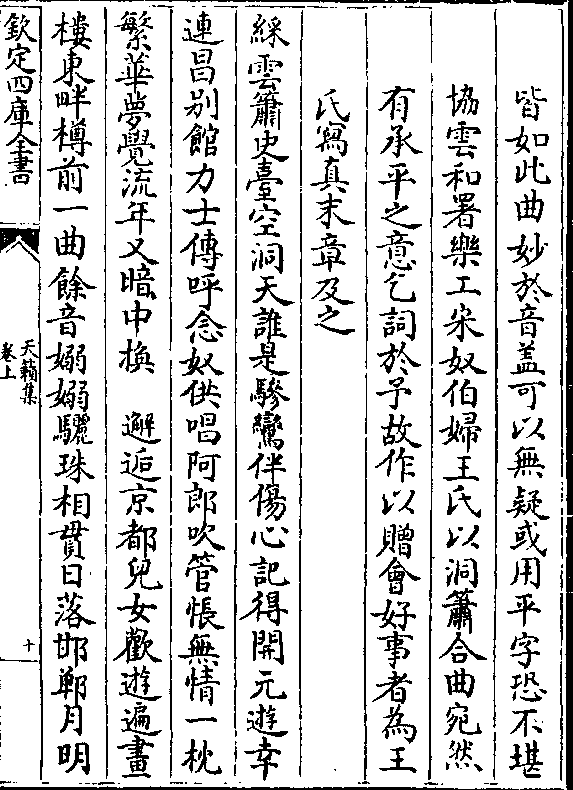 皆如此曲妙於音蓋可以無疑或用平字恐不堪
協雲和署樂工宋奴伯婦王氏以洞簫合曲宛然
有承平之意乞詞於予故作以贈會好事者為王
氏寫真末章及之
綵雲簫史臺空洞天誰是驂鸞伴傷心記得開元遊幸
連昌别館力士傳呼念奴供唱阿郎吹管悵無情一枕
繁華夢覺流年又暗中換　邂逅京都兒女歡遊遍畫
樓東畔樽前一曲餘音嫋嫋驪珠相貫日落邯鄲月明
欽定四庫全書
天籟集
卷上
十